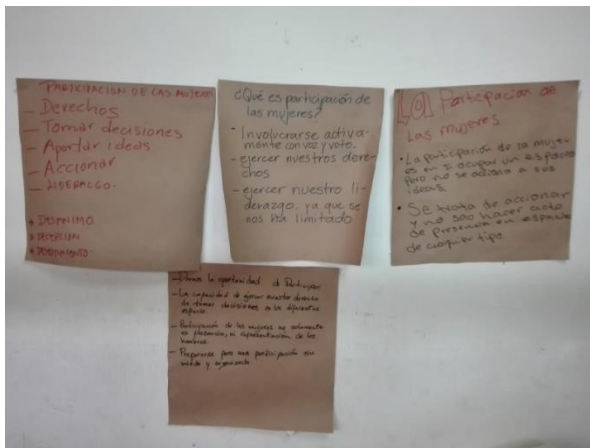 PARTICIPACION DE LAS MUJERES
— Derechos
— Tomar decisiones
— Aportar ideas
— Accionar
— LIDERALGO.
* DESANIMO
* DECEPCION
¿Qué es participación de
las mujeres?
• Involucrarse activa-
mente con voz y voto.
- ejercer nuestros dere-
chos
- ejercer nuestro li-
derazgo, ya que se
nos ha limitado
La Participación de
Las mujeres.
• La participación de la mujer
es en si ocupar un espacio
pero no se acciona a sus
ideas.
• SE trata de accionar
y no solo hacer acto
de presencia en espacio
de cualquier tipo
la oportunidad de Participar
— La capacidad de ejercer nuestro derecho
de tomar decisiones en los diferentes
espacios.
— Participación de las mujeres no solamente
es presencia, ni representación de los
hombres
— Prepararse para una participación
y organizada